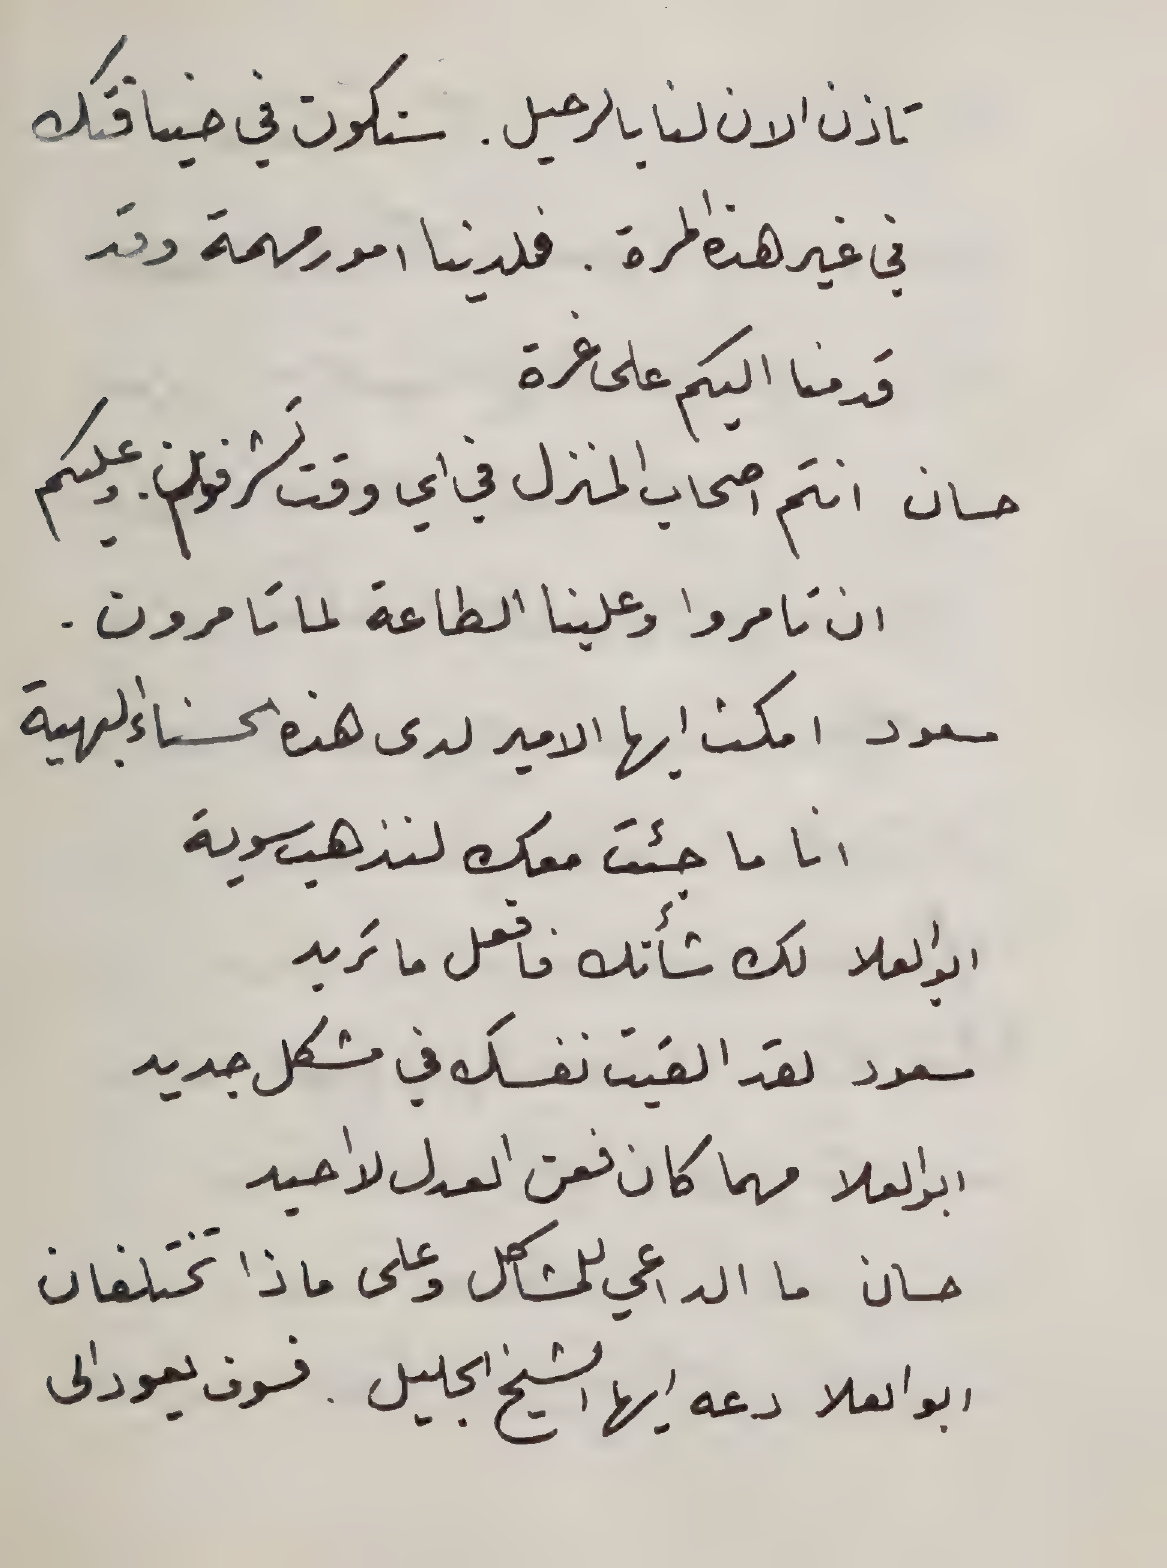 تاذن الان لنا بالرحيل . سنكون في ضيافتك
في غير هذه المرة . فلدينا امور مهمة وقد
قدمنا اليكم على غرة
حسان انتم اصحاب المنزل في اي وقت تشرفون . وعليكم
ان تامروا وعلينا الطاعة لما تامرون .
مسعود امكث ايها الامير لدى هذه الحسناء البهية
انا ما جئت معك لنذهب سوية
ابو العلا لك شأنك فافعل ما تريد
مسعود لقد القيت نفسك في مشكل جديد
ابو العلا مهما كان فعن العدل لا احيد
حسان ما الداعي للمشاكل وعلى ماذا تختلفان
ابو العلا دعه ايها الشيخ الجليل . فسوف يعود الى